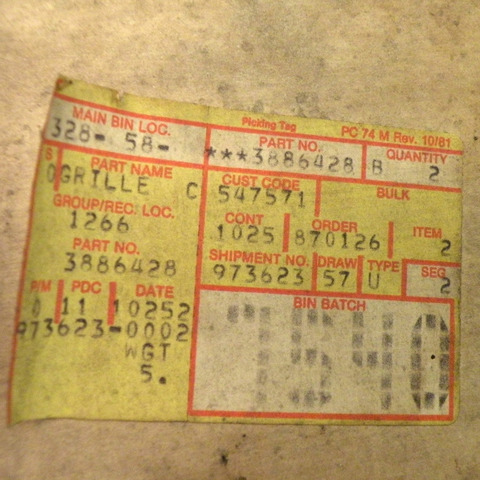 Picking Tag PC 74 M Rev. 10/81
MAIN BIN LOC. PART NO. QUANTITY
328- 58- ***3886428 B 2
S PART NAME CUST CODE BULK
OGRILLE C 547571
GROUP/REC. LOC. CONT ORDER ITEM
1266 1025 870126 2
PART NO. SHIPMENT NO. DRAW TYPE SEG
3886428 973623 57 U 2
P/M PDC DATE BIN BATCH
0 11 10252
973623-0002
WGT
5.
7540